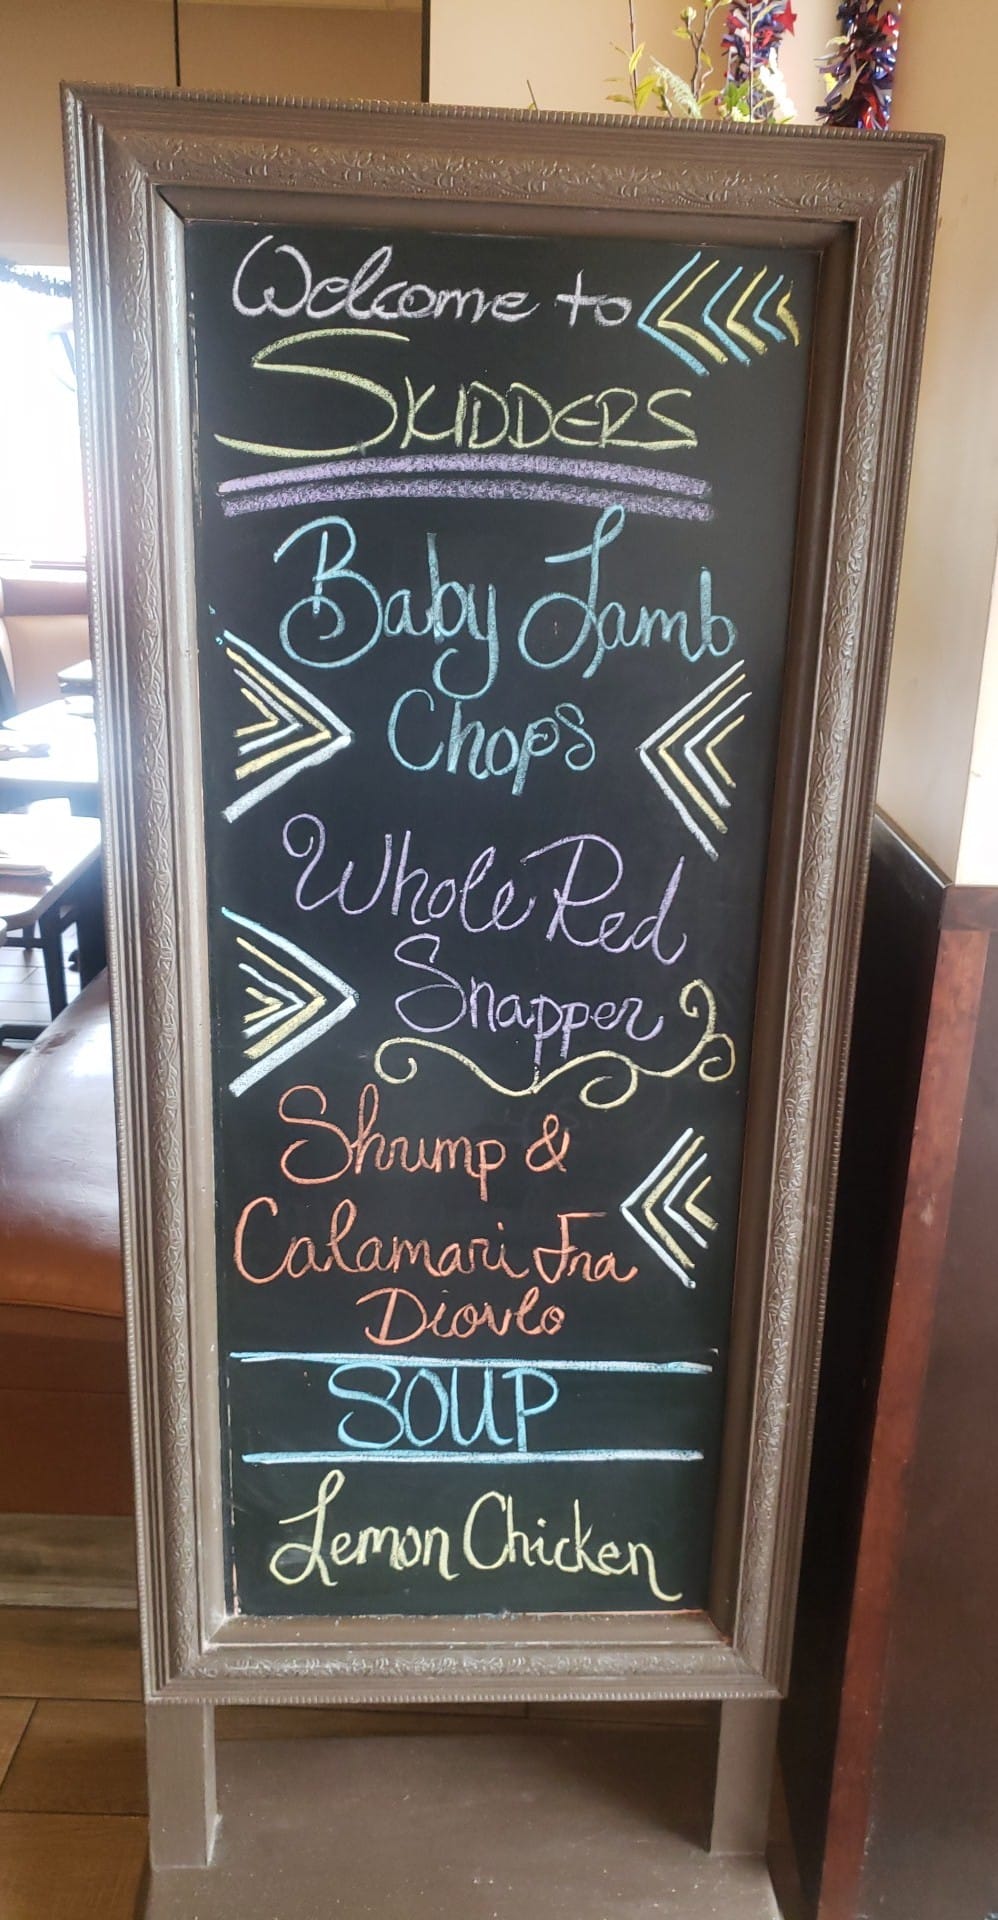 Welcome to
SKIDDERS
Baby Lamb
Chops
Whole Red
Snapper
Shrimp &
Calamari Fra
Diovlo
SOUP
Lemon Chicken